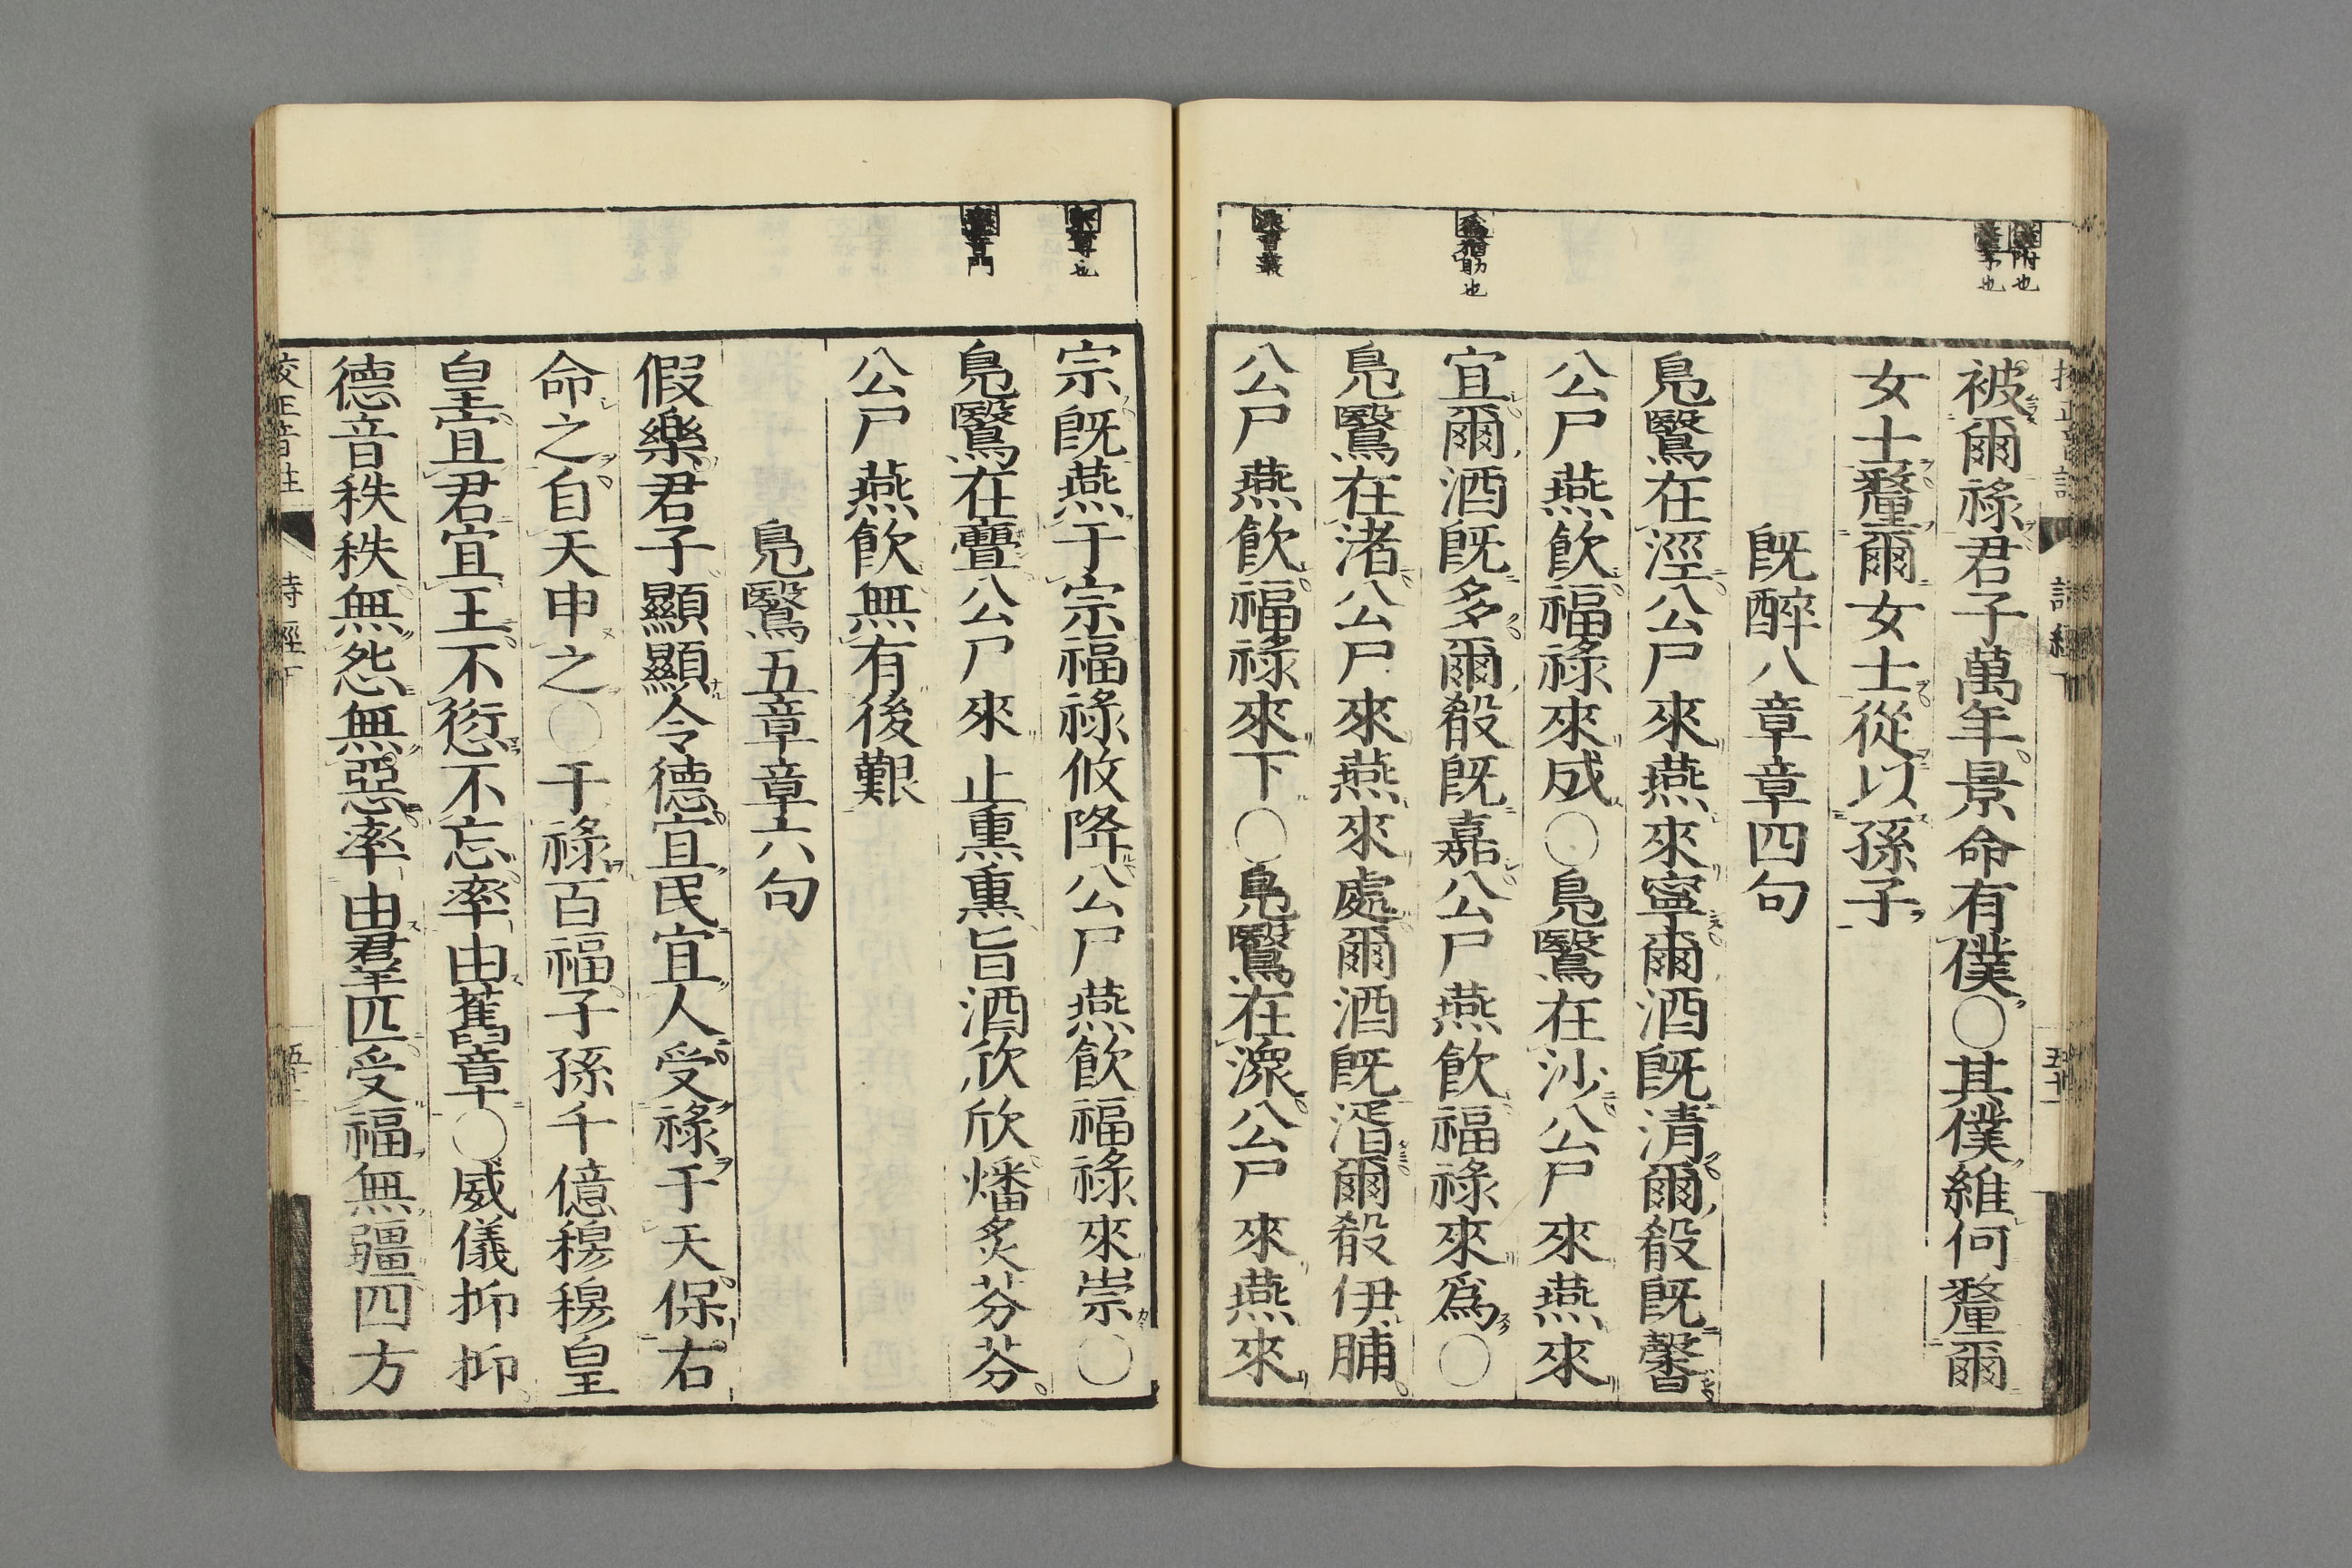 被爾祿君子萬年景命有僕○其僕維何釐爾
女士釐爾女士從以孫子
既醉八章章四句
鳧鷖在涇公尸來燕來寧爾酒既清爾殽既馨
公尸燕飲福祿來成○鳧鷖在沙公尸來燕來
宜爾酒既多爾殽既嘉公尸燕飲福祿來爲○
鳧鷖在渚公尸來燕來處爾酒既湑爾殽伊脯
公尸燕飲福祿來下○鳧鷖在潨公尸來燕來
宗既燕于宗福祿攸降公尸燕飲福祿來崇○
鳧鷖在亹公尸來止熏熏旨酒欣欣燔炙芬芬
公尸燕飲無有後艱
鳧鷖五章章六句
假樂君子顯顯令德宜民宜人受祿于天保右
命之自天申之○干祿百福子孫千億穆穆皇
皇宜君宜王不愆不忘率由舊章○威儀抑抑
德音秩秩無怨無惡率由羣匹受福無疆四方